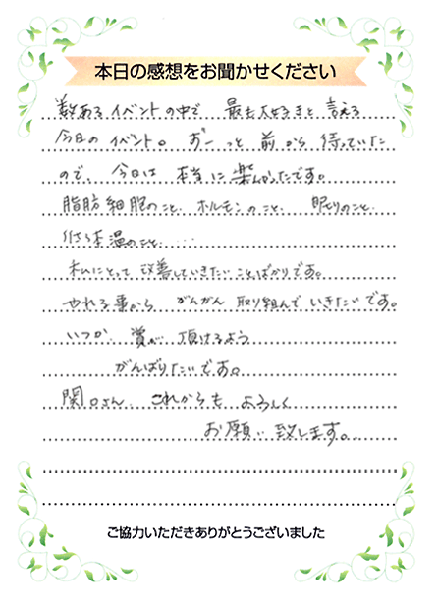 本日の感想をお聞かせください
数あるイベントの中で 最も大好きと言える
今日のイベント。ずーっと前から待っていた
ので、今日は本当に楽しかったです。
脂肪細胞のこと、ホルモンのこと、眠りのこと、
低体温のこと.....
私にとって改善していきたいことばかりです。
やれる事から がんがん取り組んでいきたいです。
いつか、賞が頂けるよう
がんばりたいです。
関口さん、これからもよろしく
お願い致します。
ご協力いただきありがとうございました